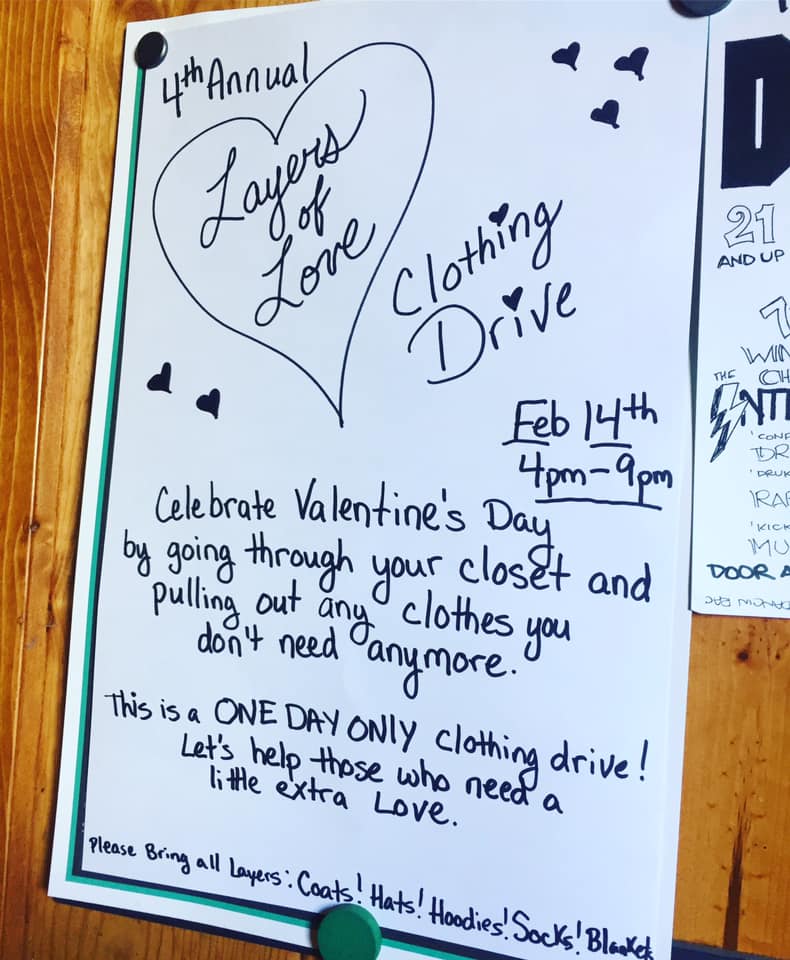 4th Annual
Layers
of
Love
Clothing
Drive
Feb 14th
4pm-9pm
Celebrate Valentine's Day
by going through your closet and
pulling out any clothes you
don't need anymore.
This is a ONE DAY ONLY clothing drive!
Let's help those who need a
little extra Love.
Please Bring all Layers: Coats! Hats! Hoodies! Socks! Blanket
D
21
AND UP
WIN
THE CH
NTI
'CONF
DR
'DRUK
RAF
'KICK
MU
DOOR A